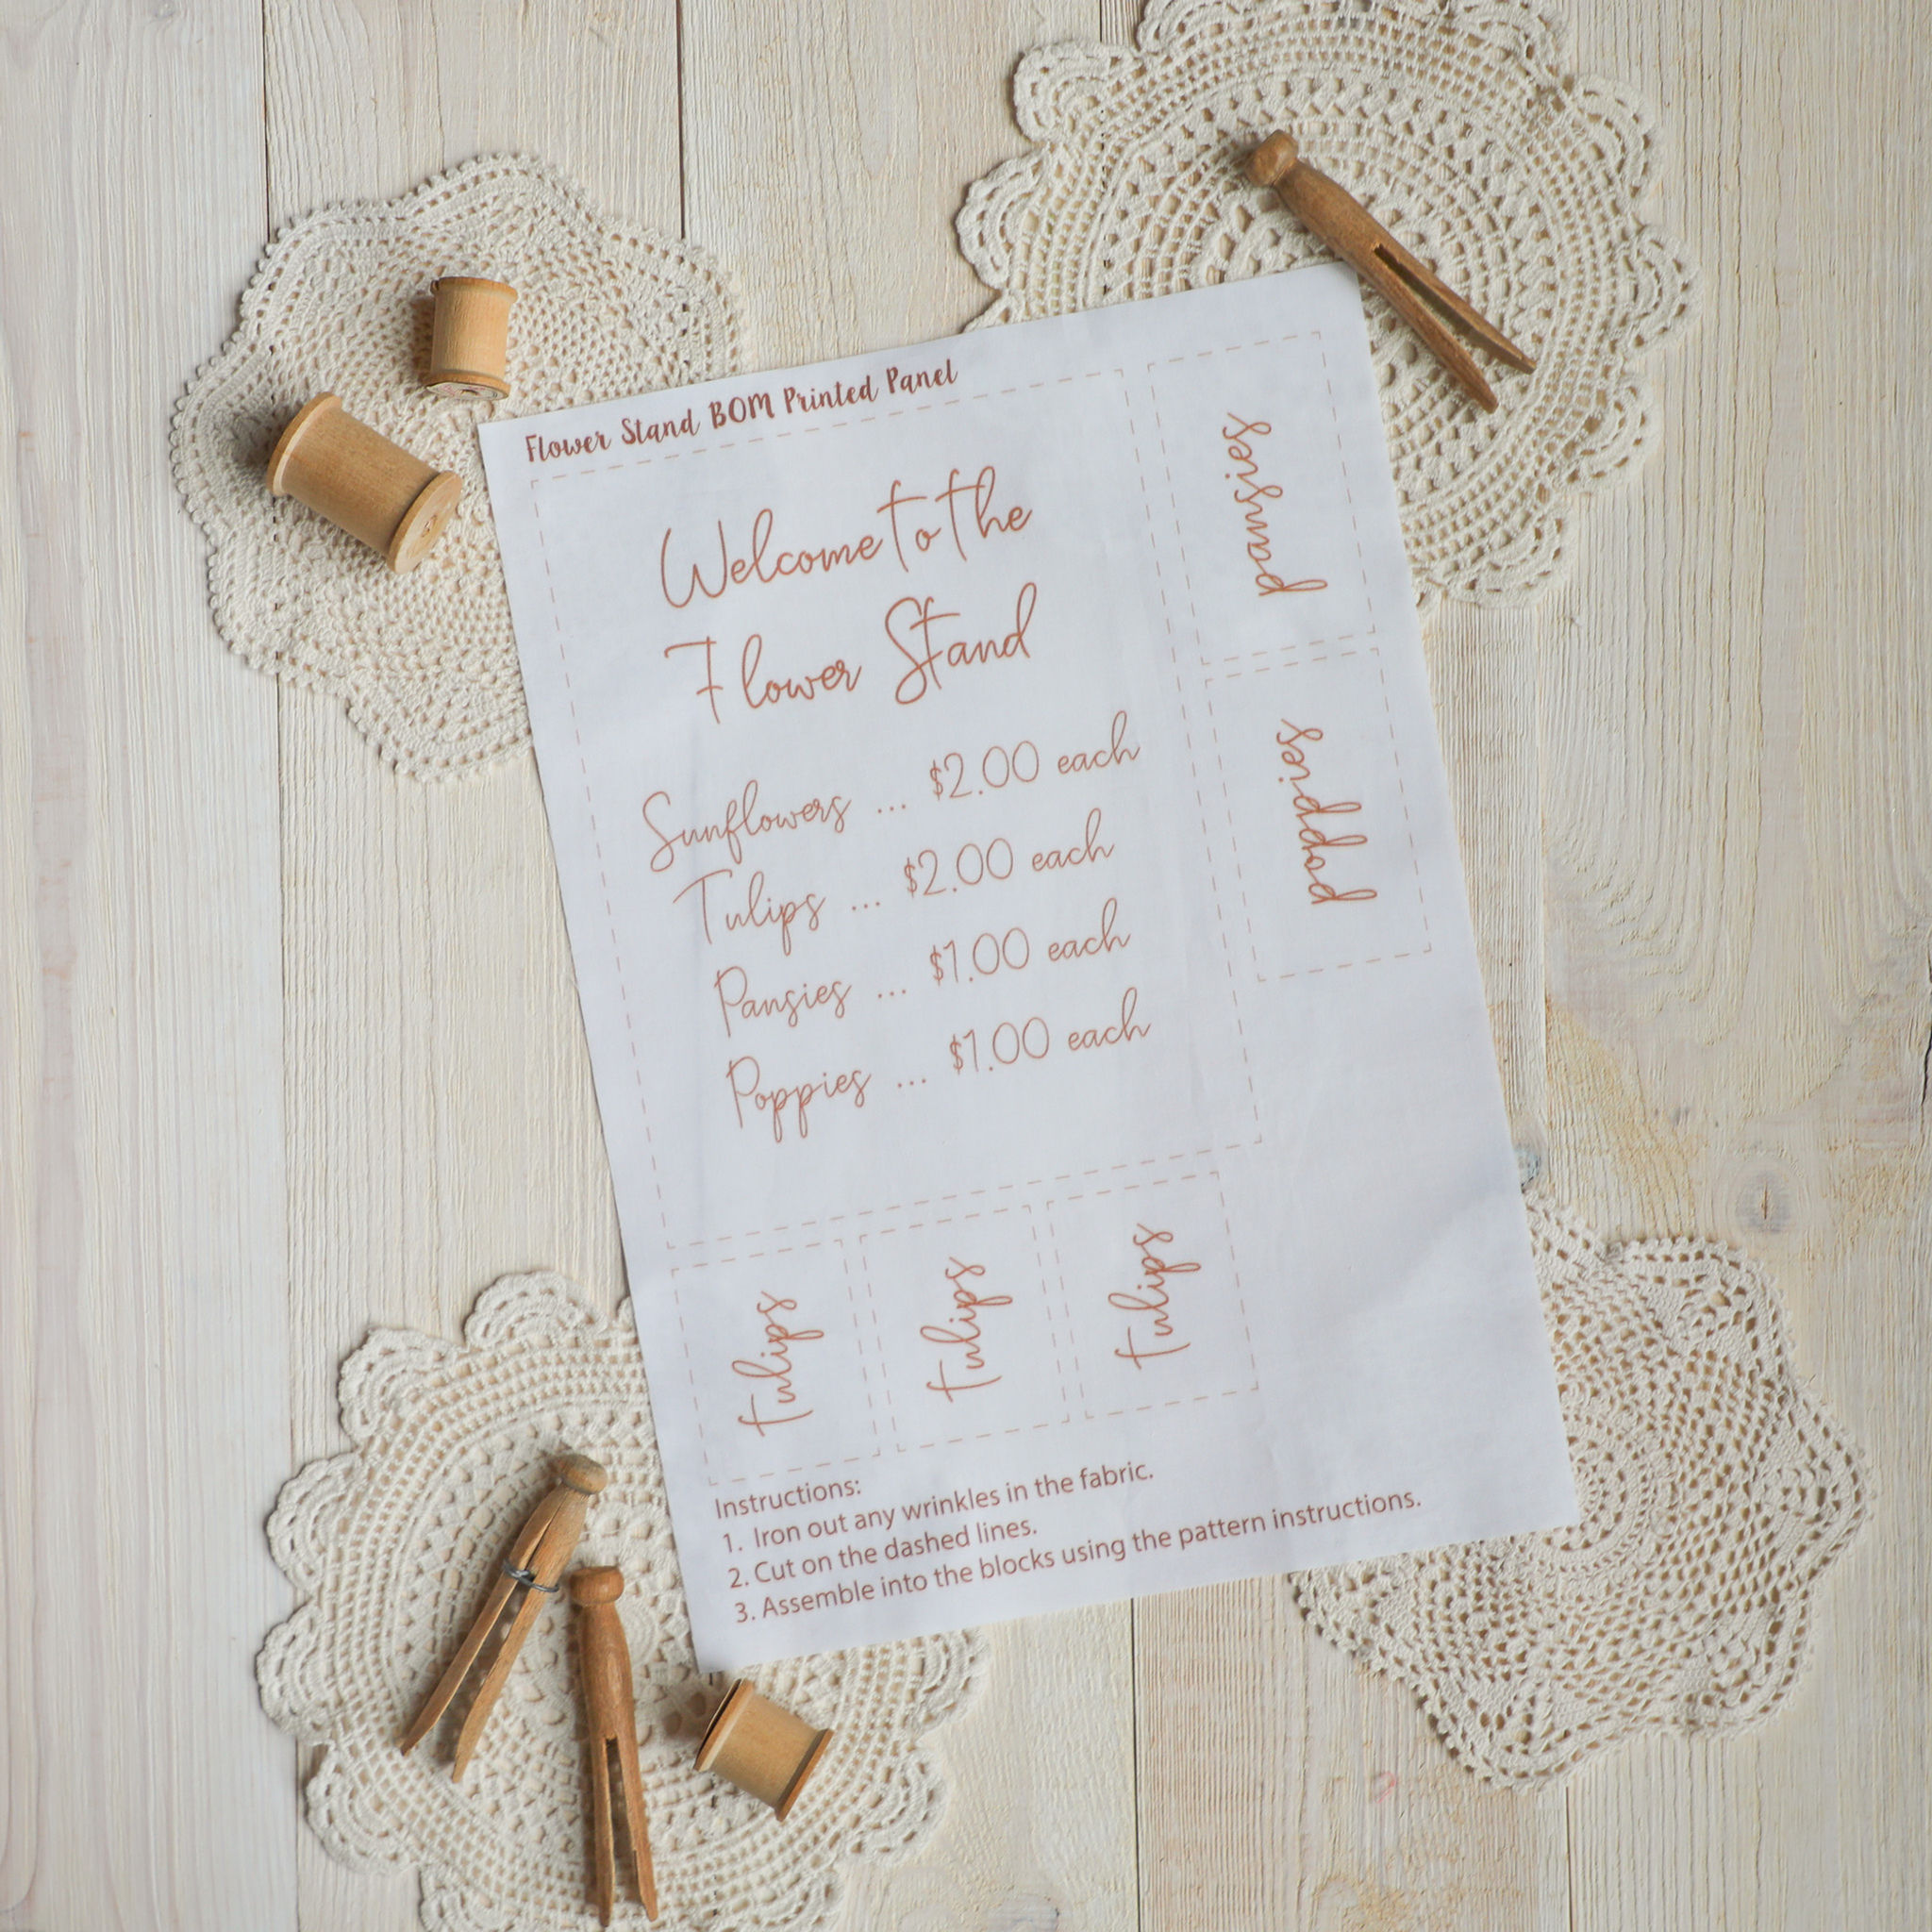 Flower Stand BOM Printed Panel
Welcome to the
Flower Stand
Sunflowers ... $2.00 each
Tulips ... $2.00 each
Pansies ... $1.00 each
Poppies ... $1.00 each
pansies
poppies
tulips
tulips
tulips
Instructions:
1. Iron out any wrinkles in the fabric.
2. Cut on the dashed lines.
3. Assemble into the blocks using the pattern instructions.